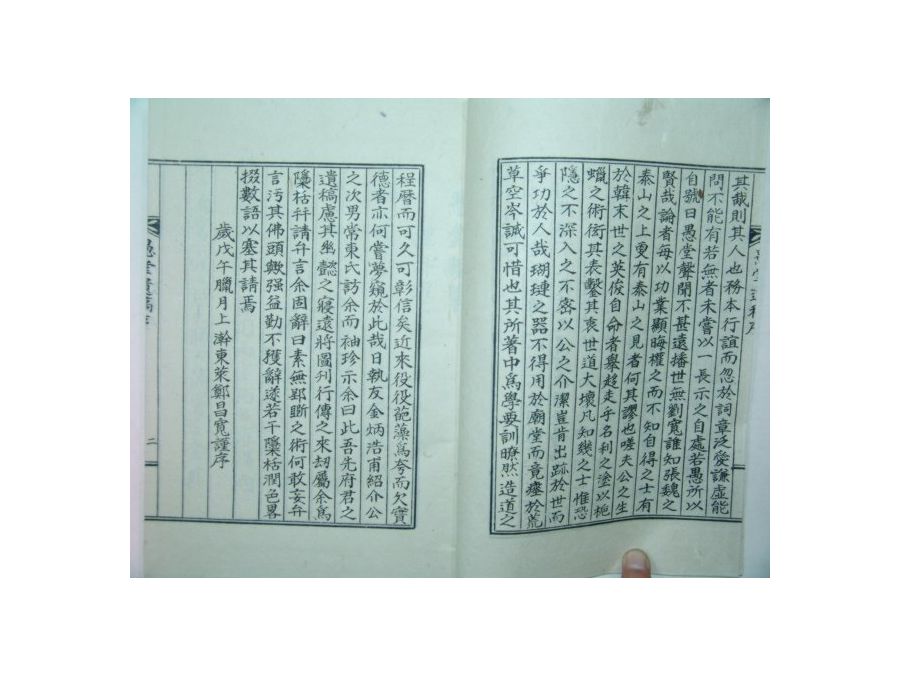 其哉則其人也務本行誼而忽於詞章泛愛謙虛能
問不能有若無者未嘗以一長示之自處若愚所以
自號曰愚堂聲聞不甚遠播世無劉寬誰知張魏之
賢哉論者每以功業顯晦權之而不知自得之士有
泰山之上更有泰山之見者何其謬也嗟夫公之生
於韓末世之英俊自命者擧趍走乎名利之塗以梔
蠟之術衒其表鑿其衷世道大壞凡知幾之士惟恐
隱之不深入之不密以公之介潔豈肯出跡於世而
爭功於人哉瑚璉之器不得用於廟堂而竟瘞於荒
草空岑誠可惜也其所著中爲學要訓暸然造道之
程曆而可久可彰信矣近來役役葩藻爲夸而欠實
德者亦何嘗夢窺於此哉日執友金炳浩甫紹介公
之次男常東氏訪余而袖珍示余曰此吾先府君之
遺稿慮其幽懿之寢遠將圖刊行傳之來刼屬余爲
檃栝幷請弁言余固辭曰素無郢斲之術何敢妄弁
言汚其佛頭歟强益勤不獲辭遂若干檃栝潤色畧
掇數語以塞其請焉
歲戊午臘月上澣東萊鄭昌寬謹序
二